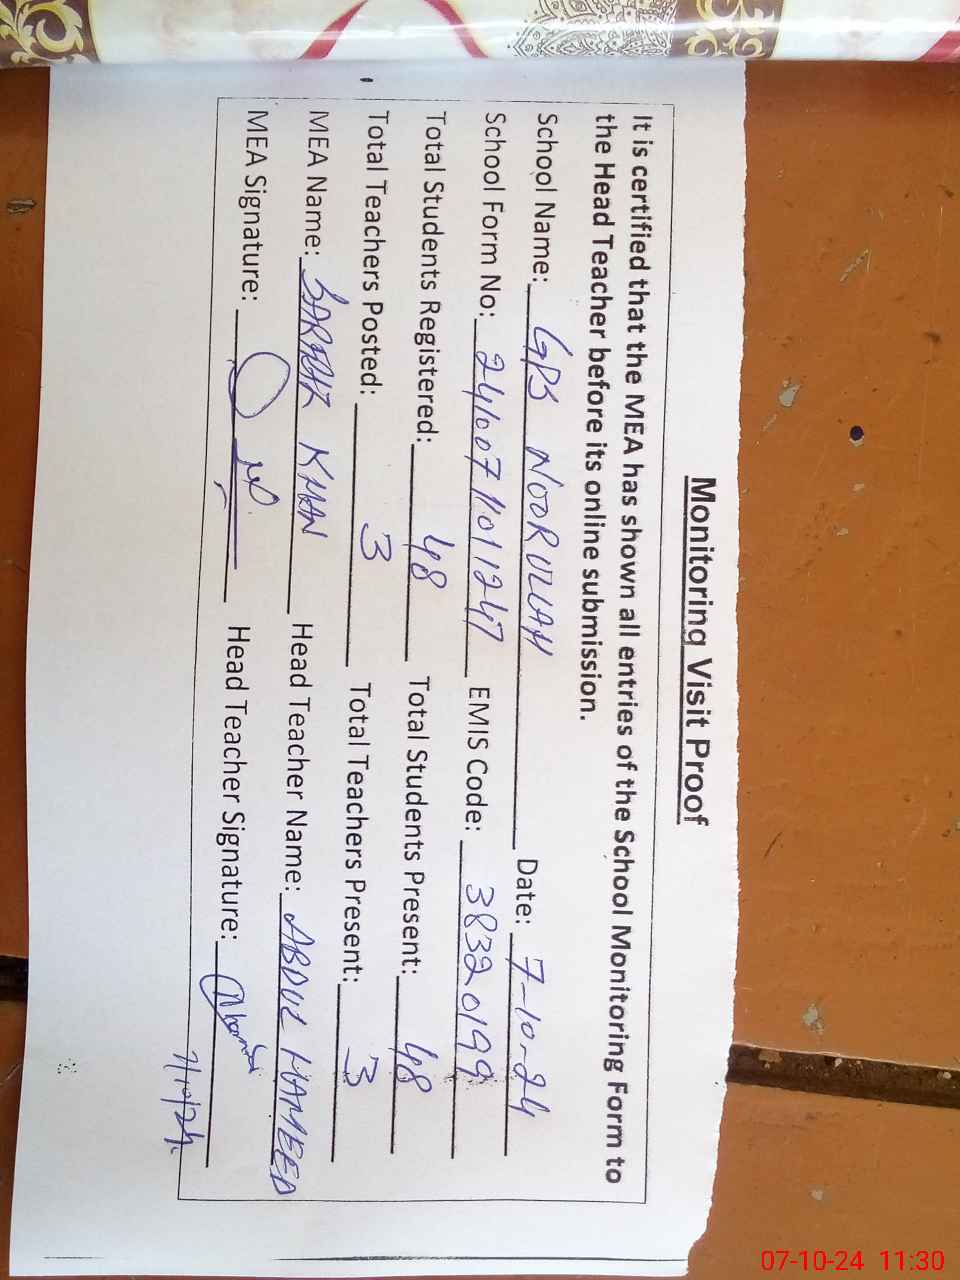 Monitoring Visit Proof
It is certified that the MEA has shown all entries of the School Monitoring Form to
the Head Teacher before its online submission.
School Name: GPS NOORULLAH Date: 7-10-24
School Form No: 241007 1101 1247 EMIS Code: 38320199
Total Students Registered: 48 Total Students Present: 48
Total Teachers Posted: 3 Total Teachers Present: 3
MEA Name: KHAN Head Teacher Name: ABDUL HAMEED
MEA Signature: Head Teacher Signature:
7/10/24
07-10-24 11:30